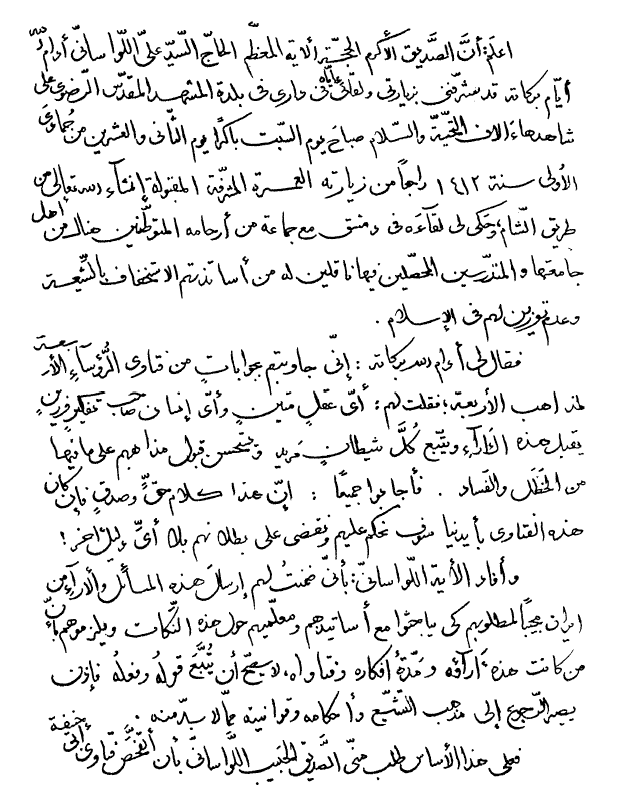 اعلم: أنّ الصّديق الأكرم الحجّة الآية المعظّم الحاجّ السّيّد علىّ اللّواسانىّ أدام الله
أيّام بركاته قد شرّفنى بزيارتى ولقائى إيّاه فى دارى فى بلدة المشهد المقدّس الرّضوىّ على
شاهدها آلاف التّحيّة والسّلام صباح يوم السّبت باكرًا يوم الثّانى والعشرين من جمادى
الأولى سنة ١٤١٢ راجعًا من زيارته العمرة المشرّفة المقبولة إنشاء الله تعالى من
طريق الشّام؛ وحكى لى لقاءه فى دمشق مع جماعة من أرحامه المتوطّنين هناك من أهل
جامعتها والمتدرّسين المحصّلين فيها ناقلين له من أساتذتهم الاستخفاف بالشّيعة
وعدم توزين لهم فى الإسلام .
فقال لى أدام الله بركاته : إنّى جاوبتهم بجوابات من فتاوى الرّؤسآء الأربعة
لمذاهب الأربعة؛ فقلت لهم : أىّ عقل متين وأىّ إنسان صاحب تفكير رزين
يقبل هذه الآراء ويتّبع كلّ شيطان مريد ويستحسن قبول مذاهبهم على ما فيها
من الخطل والفساد . فأجابوا جميعًا : إنّ هذا كلام حقّ وصدق فإن كان
هذه الفتاوى بأيدينا سوف نحكم عليهم ونقضى على بطلانهم بلا أىّ دليل آخر !
وأفاد الآية اللّواسانىّ: بأنّى ضمنت لهم إرسال هذه المسائل والآراء من
ايران مجيبًا لمطلوبهم كى يباحثوا مع أساتيدهم ومعلّميهم حول هذه النّكات ويلزموهم بأنّ
من كانت هذه آراؤه ومدّة أفكاره وفتاواه، لا يصحّ أن يُتّبع قوله وفعله فإذن
يصير الرّجوع إلى مذهب التّشيّع وأحكامه وقوانينه ممّا لا بدّ منه .
فعلى هذا الأساس طلب منّى الصّديق الحبيب اللّواسانىّ بأن أتفحّص فتاوى أبى حنيفة